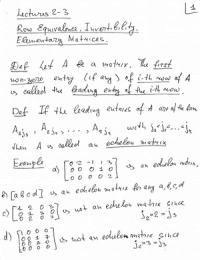 Lectures 2-3
1
Row Equivalence. Invertibility.
Elementary Matrices.
Def Let A be a matrix. The first
non-zero entry (if any) of i-th row of A
is called the leading entry of the i-th row.
Def If the leading entries of A are of the form
then A is called an echelon matrix
Example a) is an echelon matrix.
b) [a b c d] is an echelon matrix for any a, b, c, d
c) is not an echelon matrix since
j₂=2=j₃
d) is not an echelon matrix since
j₂=3=j₃